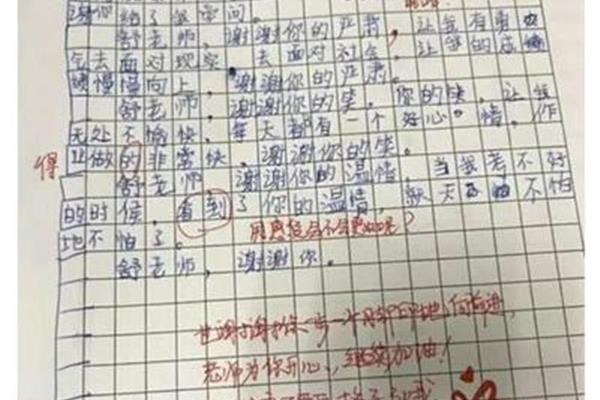 谢你给了我学问。
舒老师，谢谢你的严肃，让我有勇
气去面对现实，去面对社会，让我的成
绩慢慢向上，谢谢你的严肃。
舒老师，谢谢你的笑，你的笑，让我
无处不愉快，每天都有一个好心情，作
业做的非常快，谢谢你的笑。
得
舒老师，谢谢你的温情，当我考不好
的时候，看到了你的温情，就天不怕
地不怕了。
用感觉会不会更好呢？
舒老师，谢谢你。
也谢谢你一步一个脚印地向前进，
老师为你开心，继续加油！